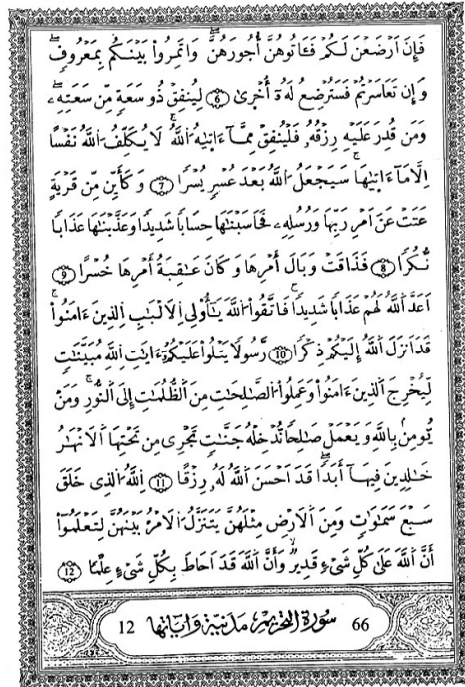 فَإِنَ اَرْضَعْنَ لَكُمْ فَـَٔاتُوهُنَّ أُجُورَهُنَّ وَاتَمِرُواْ بَيْنَكُم بِمَعْرُوفٍ
وَإِن تَعَاسَرْتُمْ فَسَتُرْضِعُ لَهُۥٓ أُخْرَىٰ 6 لِيُنفِقْ ذُو سَعَةٍ مِّن سَعَتِهِۦ
وَمَن قُدِرَ عَلَيْهِ رِزْقُهُۥ فَلْيُنفِقْ مِمَّآ ءَاتَيٰهُ اُللَّهُ لَا يُكَلِّفُ اُللَّهُ نَفْسًا
اِلَّا مَآ ءَاتَيٰهَا سَيَجْعَلُ اُللَّهُ بَعْدَ عُسْرٍ يُسْرًا 7 وَكَأَيِّن مِّن قَرْيَةٍ
عَتَتْ عَنَ اَمْرِ رَبِّهَا وَرُسُلِهِۦ فَحَاسَبْنَٰهَا حِسَابًا شَدِيدًا وَعَذَّبْنَٰهَا عَذَابًا
نُّكُرًا 8 فَذَاقَتْ وَبَالَ أَمْرِهَا وَكَانَ عَٰقِبَةُ أَمْرِهَا خُسْرًا 9
اَعَدَّ اَللَّهُ لَهُمْ عَذَابًا شَدِيدًا فَاتَّقُواْ اُللَّهَ يَٰٓأُوْلِى اِلَالْبَٰبِ اِلذِينَ ءَامَنُواْ
قَدَ اَنزَلَ اَللَّهُ إِلَيْكُمْ ذِكْرًا 10 رَّسُولًا يَتْلُواْ عَلَيْكُمُۥٓ ءَايَٰتِ اِللَّهِ مُبَيَّنَٰتٍ
لِّيُخْرِجَ اَلذِينَ ءَامَنُواْ وَعَمِلُواْ اُلصَّٰلِحَٰتِ مِنَ اَلظُّلُمَٰتِ إِلَى اَلنُّورِ وَمَنْ
يُّومِنۢ بِاللَّهِ وَيَعْمَلْ صَٰلِحًا نُّدْخِلْهُ جَنَّٰتٍ تَجْرِى مِن تَحْتِهَا اَلَانْهَٰرُ
خَٰلِدِينَ فِيهَآ أَبَدًا قَدَ اَحْسَنَ اَللَّهُ لَهُۥ رِزْقًا 11 اِللَّهُ اُلذِى خَلَقَ
سَبْعَ سَمَٰوَٰتٍ وَمِنَ اَلَارْضِ مِثْلَهُنَّ يَتَنَزَّلُ اُلَامْرُ بَيْنَهُنَّ لِتَعْلَمُوٓاْ
أَنَّ اَللَّهَ عَلَىٰ كُلِّ شَىْءٍ قَدِيرٌ وَأَنَّ اَللَّهَ قَدَ اَحَاطَ بِكُلِّ شَىْءٍ عِلْمًا 12
66 سورة التحريم مدنية وءاياتها 12